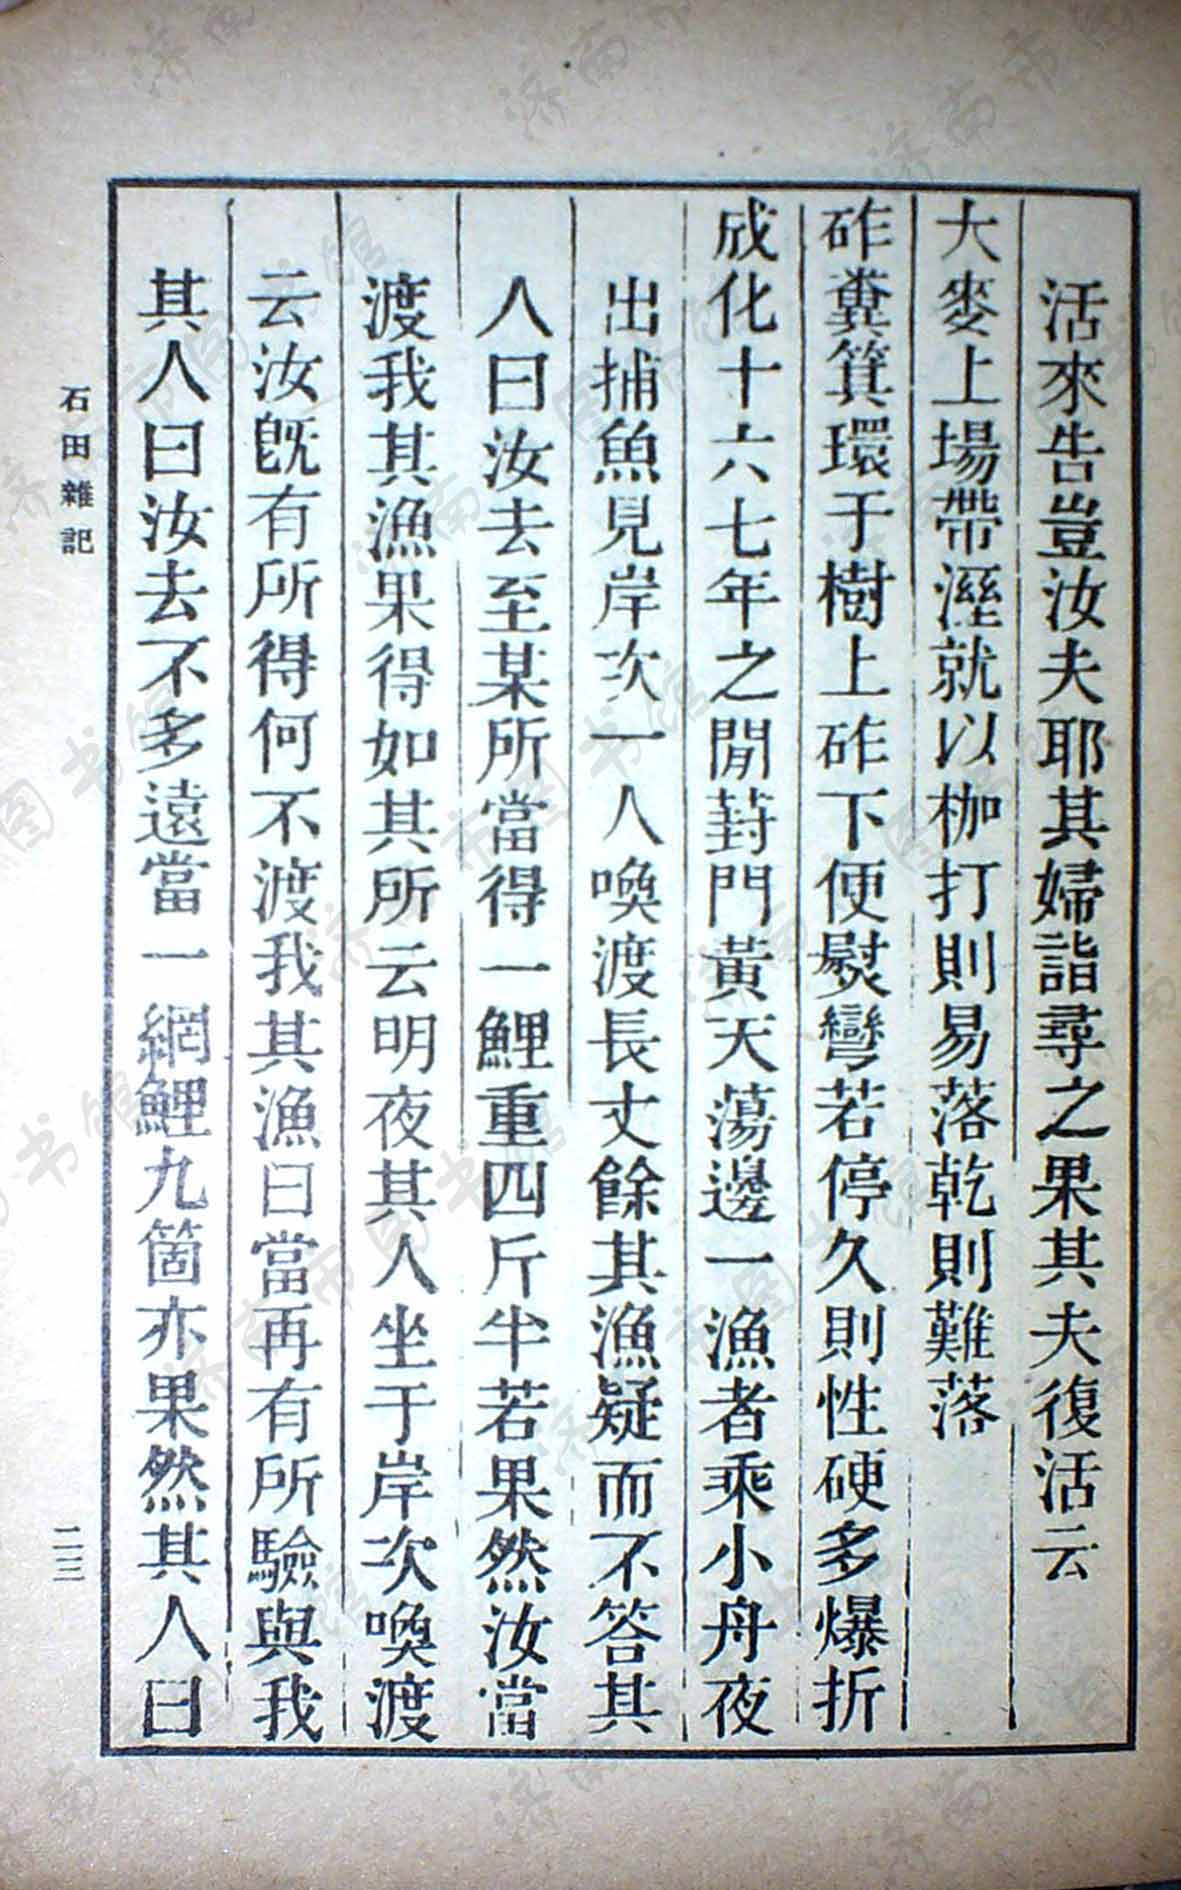 活來告豈汝夫耶其婦詣尋之果其夫復活云
大麥上場帶溼就以枷打則易落乾則難落
砟糞箕環于樹上砟下便熨彎若停久則性硬多爆折
成化十六七年之閒葑門黃天蕩邊一漁者乘小舟夜
出捕魚見岸次一人喚渡長丈餘其漁疑而不答其
人曰汝去至某所當得一鯉重四斤半若果然汝當
渡我其漁果得如其所云明夜其人坐于岸次喚渡
云汝旣有所得何不渡我其漁曰當再有所驗與我
其人曰汝去不多遠當一網鯉九箇亦果然其人曰
石田雜記
二三
济南市图书馆